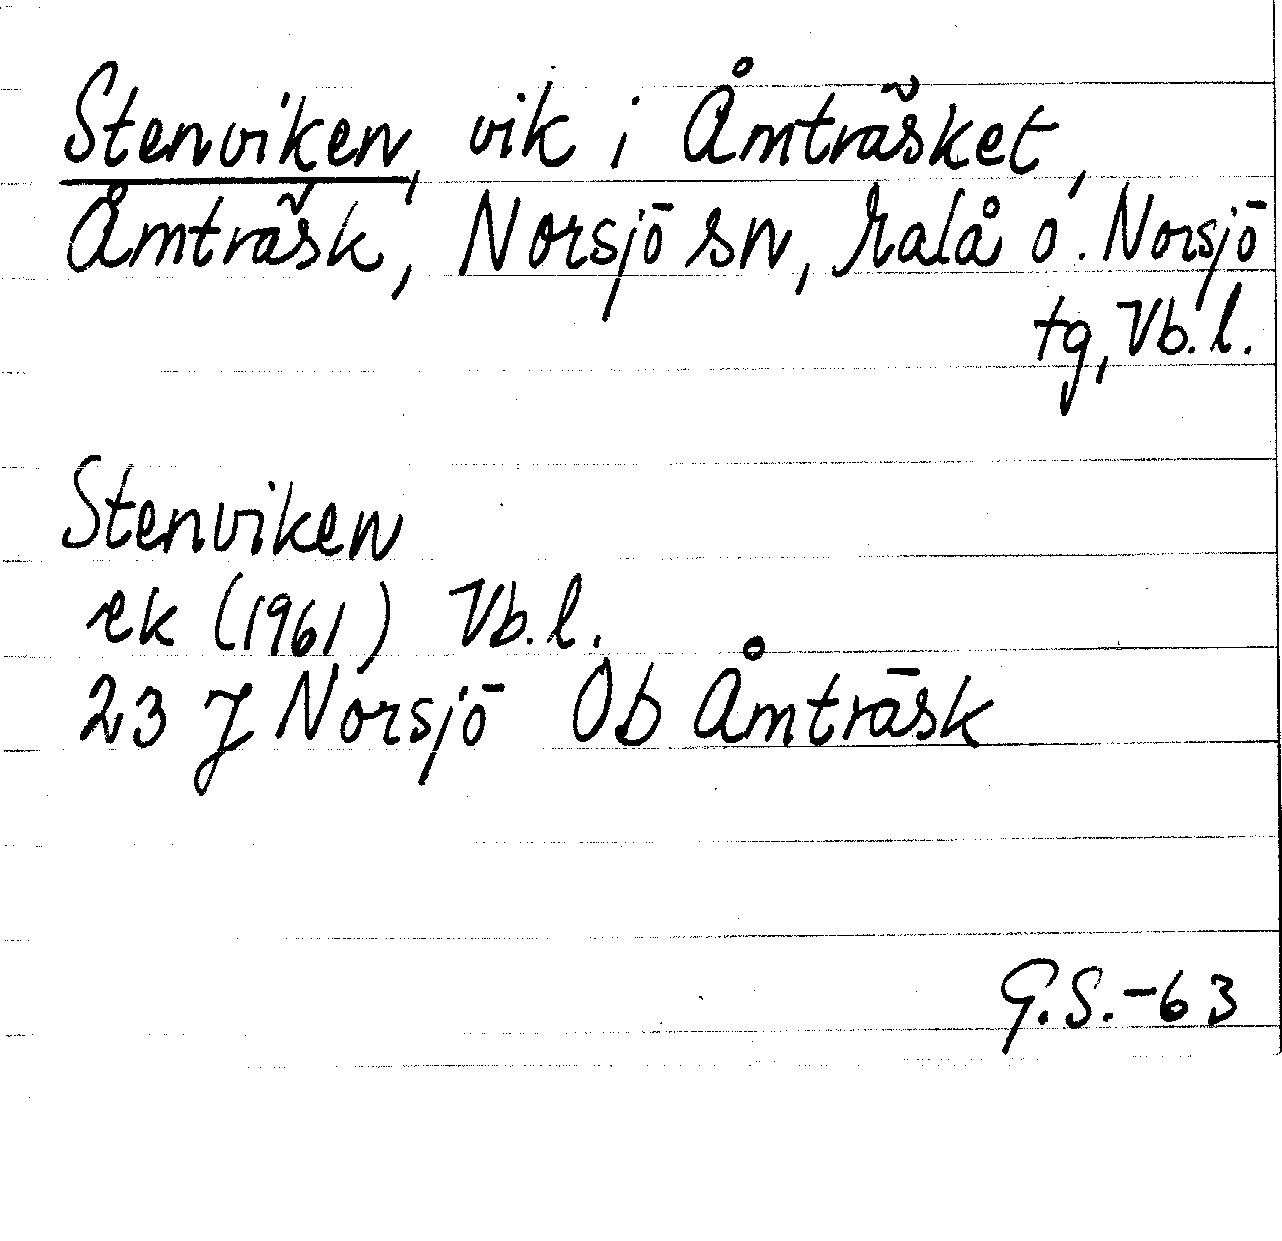 Stenviken, vik i Åmträsket,
Åmträsk, Norsjö sn, Malå o. Norsjö
tg, Vb. l.
Stenviken
ek (1961) Vb. l.
23 J Norsjö Ob Åmträsk
G.S.-63